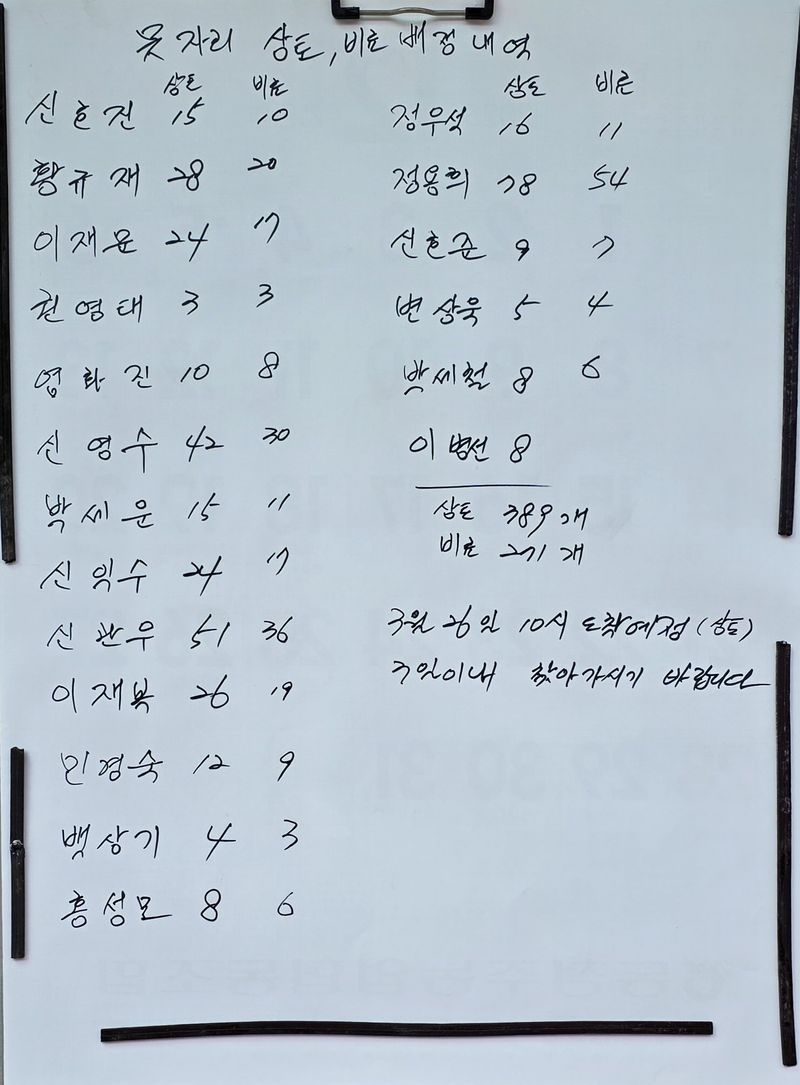 못자리 상토, 비료 배정내역
상토 비료
신호진 15 10
황규재 28 20
이재윤 24 17
권영태 3 3
염화진 10 8
신영수 42 30
박세운 15 11
신익수 24 17
신관우 51 36
이재복 26 19
민경숙 12 9
백상기 4 3
홍성모 8 6
상토 비료
정우석 16 11
정용희 78 54
신호준 9 7
변상욱 5 4
박세철 8 6
이병선 8
상토 389개
비료 271개
3월 26일 10시 도착예정 (상토)
3일이내 찾아가시기 바랍니다